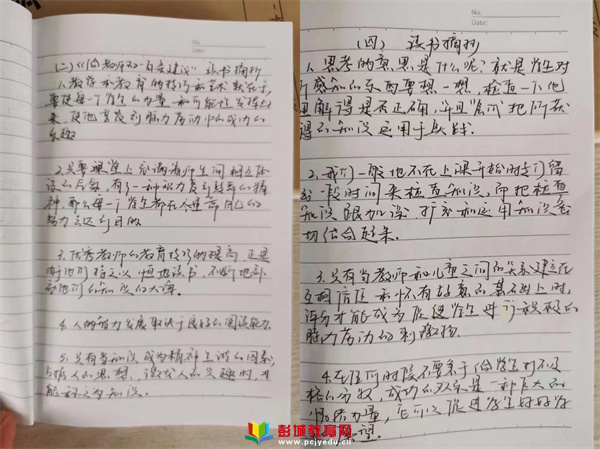 No.
Date:
(二)《给教师的一百条建议》读书摘抄
1.教学和教育的技巧和艺术就在于,
要使每一个学生的力量和可能性发挥出
来,使他享受到脑力劳动中的成功的
乐趣。
2.只要课堂上充满着师生间相互
有了一种
神,那么每一个学生都在尽靠自己的
努力去达到目的。
3.优秀教师的教育技巧的提高,正是
由于他们持之以恒地读书,不断地补
充他们的知识的大海。
4.人的智力发展取决于良好的阅读能力。
5.只有当知识成为精神生活的因素,
人的思想,激发人的兴趣时,才
能称之为知识。
No.
Date:
(四) 读书摘抄
1.思考的意思是什么呢?就是学生对
所感知的东西要想一想,检查一下他
理解得是不正确,并且尝试把所获
得的知识运用于实践。
2.我们一般地不在上课开始时专门留
出一段时间来检查知识,而把检查
知识跟加深、扩充和运用知识密
切结合起来。
3.只有当教师和儿童之间的关系建立在
互相信任和怀有好意的基础上时,
评分才能成为促进学生进行积极的
脑力劳动的刺激物。
4.在任何时候不要急于给学生打不及
格的分数,成功的欢乐是一种巨大的
情绪力量,它可以促进学生好好学
习的愿望。
彭城教育网
www.pcjyedu.cn